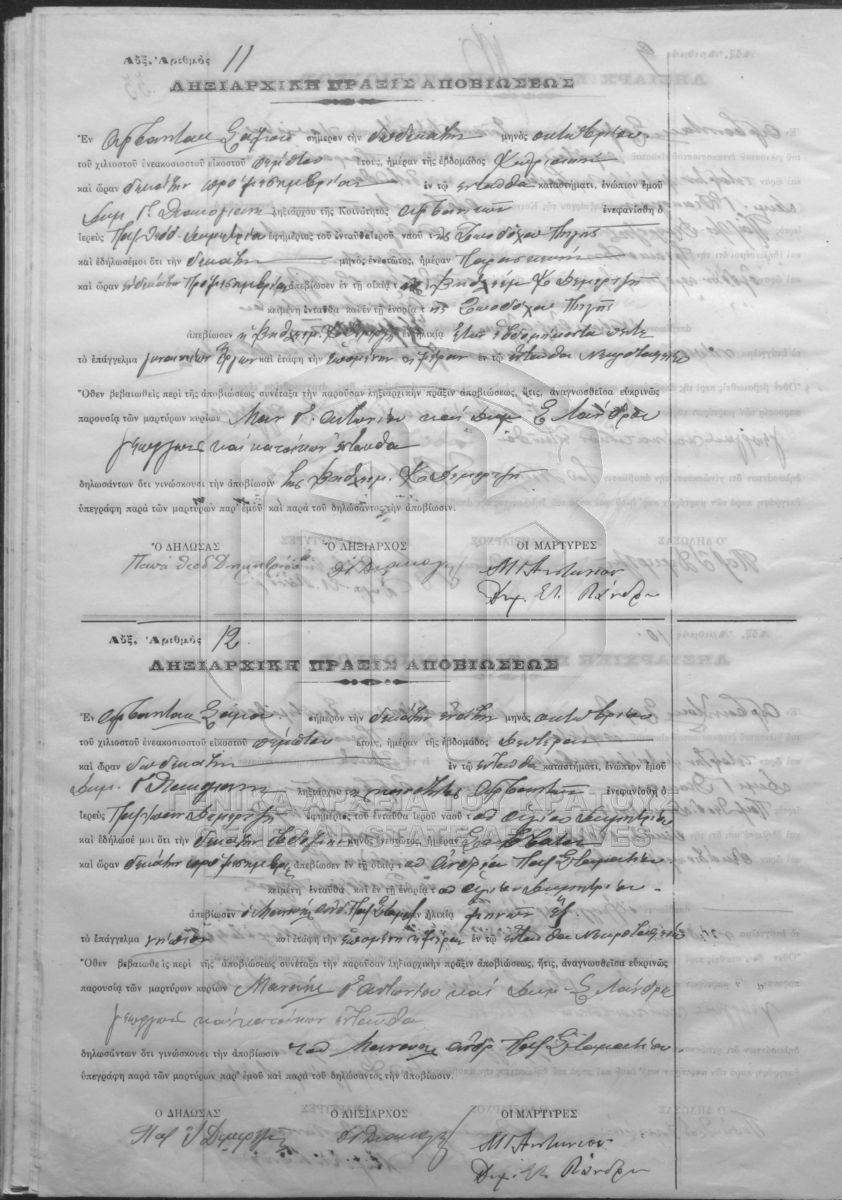 Αὔξ. Ἀριθμὸς 11
ΛΗΞΙΑΡΧΙΚΗ ΠΡΑΞΙΣ ΑΠΟΒΙΩΣΕΩΣ
Ἐν Σάμου σήμερον τὴν δωδεκάτην μηνὸς Ὀκτωβρίου
τοῦ χιλιοστοῦ ἐνεακοσιοστοῦ εἰκοστοῦ πέμπτου ἔτους, ἡμέραν τῆς ἑβδομάδος Κυριακὴν
καὶ ὥραν δεκάτην προμεσημβρίας ἐν τῷ ἐνταῦθα καταστήματι, ἐνώπιον ἐμοῦ
Δημ. Γ. ληξιάρχου τῆς Κοινότητος ἐνεφανίσθη ὁ
ἱερεὺς Παπ. Θεοδ. Δημητρίου ἐφημέριος τοῦ ἐνταῦθα ἱεροῦ ναοῦ τῆς Ζωοδόχου Πηγῆς
καὶ ἐδήλωσέ μοι ὅτι τὴν δεκάτην μηνὸς ἐνεστῶτος, ἡμέραν Παρασκευὴν
καὶ ὥραν ἑνδεκάτην προμεσημβρίας ἀπεβίωσεν ἐν τῇ οἰκίᾳ τ
κειμένῃ ἐνταῦθα καὶ ἐν τῇ ἐνορίᾳ τῆς Ζωοδόχου Πηγῆς
ἀπεβίωσεν ἡ ἡλικία ἐτῶν ἑβδομήκοντα πέντε
τὸ ἐπάγγελμα γυναικείων ἔργων καὶ ἐτάφη τὴν ἑπομένην ἡμέραν ἐν τῷ ἐνταῦθα Νεκροταφείῳ
Ὅθεν βεβαιωθεὶς περὶ τῆς ἀποβιώσεως συνέταξα τὴν παροῦσαν ληξιαρχικὴν πρᾶξιν ἀποβιώσεως, ἥτις, ἀναγνωσθεῖσα εὐκρινῶς
παρουσίᾳ τῶν μαρτύρων κυρίων Μαν. Γ. Ἀντωνίου καὶ Δημ. Σ. Λάνδρου
γεωργοὺς καὶ κατοίκων ἐνταῦθα
δηλωσάντων ὅτι γινώσκουσι τὴν ἀποβίωσιν τῆς
ὑπεγράφη παρὰ τῶν μαρτύρων παρ' ἐμοῦ καὶ παρὰ τοῦ δηλώσαντος τὴν ἀποβίωσιν.
Ὁ ΔΗΛΩΣΑΣ Ὁ ΛΗΞΙΑΡΧΟΣ ΟΙ ΜΑΡΤΥΡΕΣ
Παπά Θεοδ Δημητρίου Μ Γ Αντωνίου
Δημ. Στ. Λάνδρου
Αὔξ. Ἀριθμὸς 12
ΛΗΞΙΑΡΧΙΚΗ ΠΡΑΞΙΣ ΑΠΟΒΙΩΣΕΩΣ
Ἐν Σάμου σήμερον τὴν δεκάτην ἐνάτην μηνὸς Ὀκτωβρίου
τοῦ χιλιοστοῦ ἐνεακοσιοστοῦ εἰκοστοῦ πέμπτου ἔτους, ἡμέραν τῆς ἑβδομάδος Δευτέραν
καὶ ὥραν δωδεκάτην ἐν τῷ ἐνταῦθα καταστήματι, ἐνώπιον ἐμοῦ
Δημ. Γ. ληξιάρχου τῆς κοινότητος ἐνεφανίσθη ὁ
ἱερεὺς ἐφημέριος τοῦ ἐνταῦθα ἱεροῦ ναοῦ τοῦ Ἁγίου Δημητρίου
καὶ ἐδήλωσέ μοι ὅτι τὴν δεκάτην ἑβδόμην μηνὸς ἐνεστῶτος, ἡμέραν Σάββατον
καὶ ὥραν δεκάτην προμεσημβρίας ἀπεβίωσεν ἐν τῇ οἰκίᾳ τοῦ Ἀνδρέου Παπ. Σταματίου
κειμένῃ ἐνταῦθα καὶ ἐν τῇ ἐνορίᾳ τοῦ Ἁγίου Δημητρίου
ἀπεβίωσεν ὁ Μανουὴλ Ἀνδ. Παπ. Σταματ. ἡλικία μηνῶν ἓξ
τὸ ἐπάγγελμα νήπιον καὶ ἐτάφη τὴν ἑπομένην ἡμέραν ἐν τῷ ἐνταῦθα Νεκροταφείῳ
Ὅθεν βεβαιωθεὶς περὶ τῆς ἀποβιώσεως συνέταξα τὴν παροῦσαν ληξιαρχικὴν πρᾶξιν ἀποβιώσεως, ἥτις, ἀναγνωσθεῖσα εὐκρινῶς
παρουσίᾳ τῶν μαρτύρων κυρίων Μανουὴλ Γ. Ἀντωνίου καὶ Δημ. Σ. Λάνδρου
γεωργοὺς καὶ κατοίκων ἐνταῦθα
δηλωσάντων ὅτι γινώσκουσι τὴν ἀποβίωσιν τοῦ Μανουὴλ Ἀνδρ. Παπ. Σταματίου
ὑπεγράφη παρὰ τῶν μαρτύρων παρ' ἐμοῦ καὶ παρὰ τοῦ δηλώσαντος τὴν ἀποβίωσιν.
Ὁ ΔΗΛΩΣΑΣ Ὁ ΛΗΞΙΑΡΧΟΣ ΟΙ ΜΑΡΤΥΡΕΣ
Μ Γ Αντωνίου
Δημ. Στ. Λάνδρου